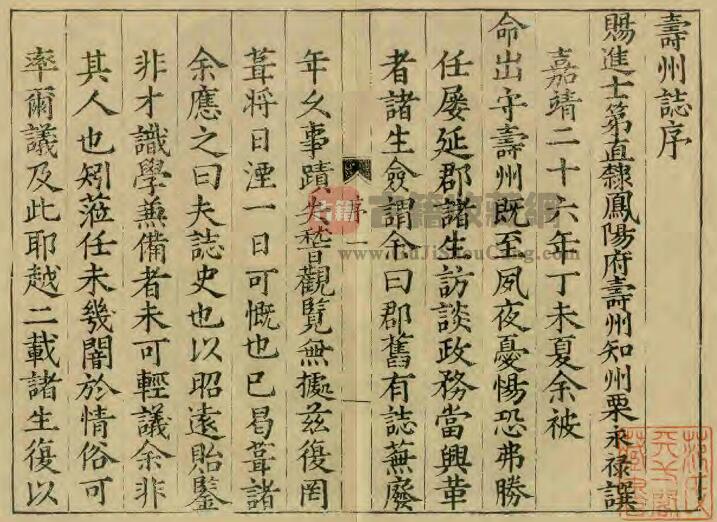 壽州誌序
賜進士第直隸鳳陽府壽州知州栗永禄譔
嘉靖二十六年丁未夏余被
命出守壽州既至夙夜憂惕恐弗勝
任屢延郡諸生訪談政務當興革
者諸生僉謂余曰郡舊有誌蕪廢
序
一
年久事蹟失稽觀覽無據兹復罔
葺將日湮一日可慨也已曷葺諸
余應之曰夫誌史也以昭遠貽鑒
非才識學兼備者未可輕議余非
其人也矧蒞任未幾闇於情俗可
率爾議及此耶越二載諸生復以
古籍
www.GuJiShouCang.com